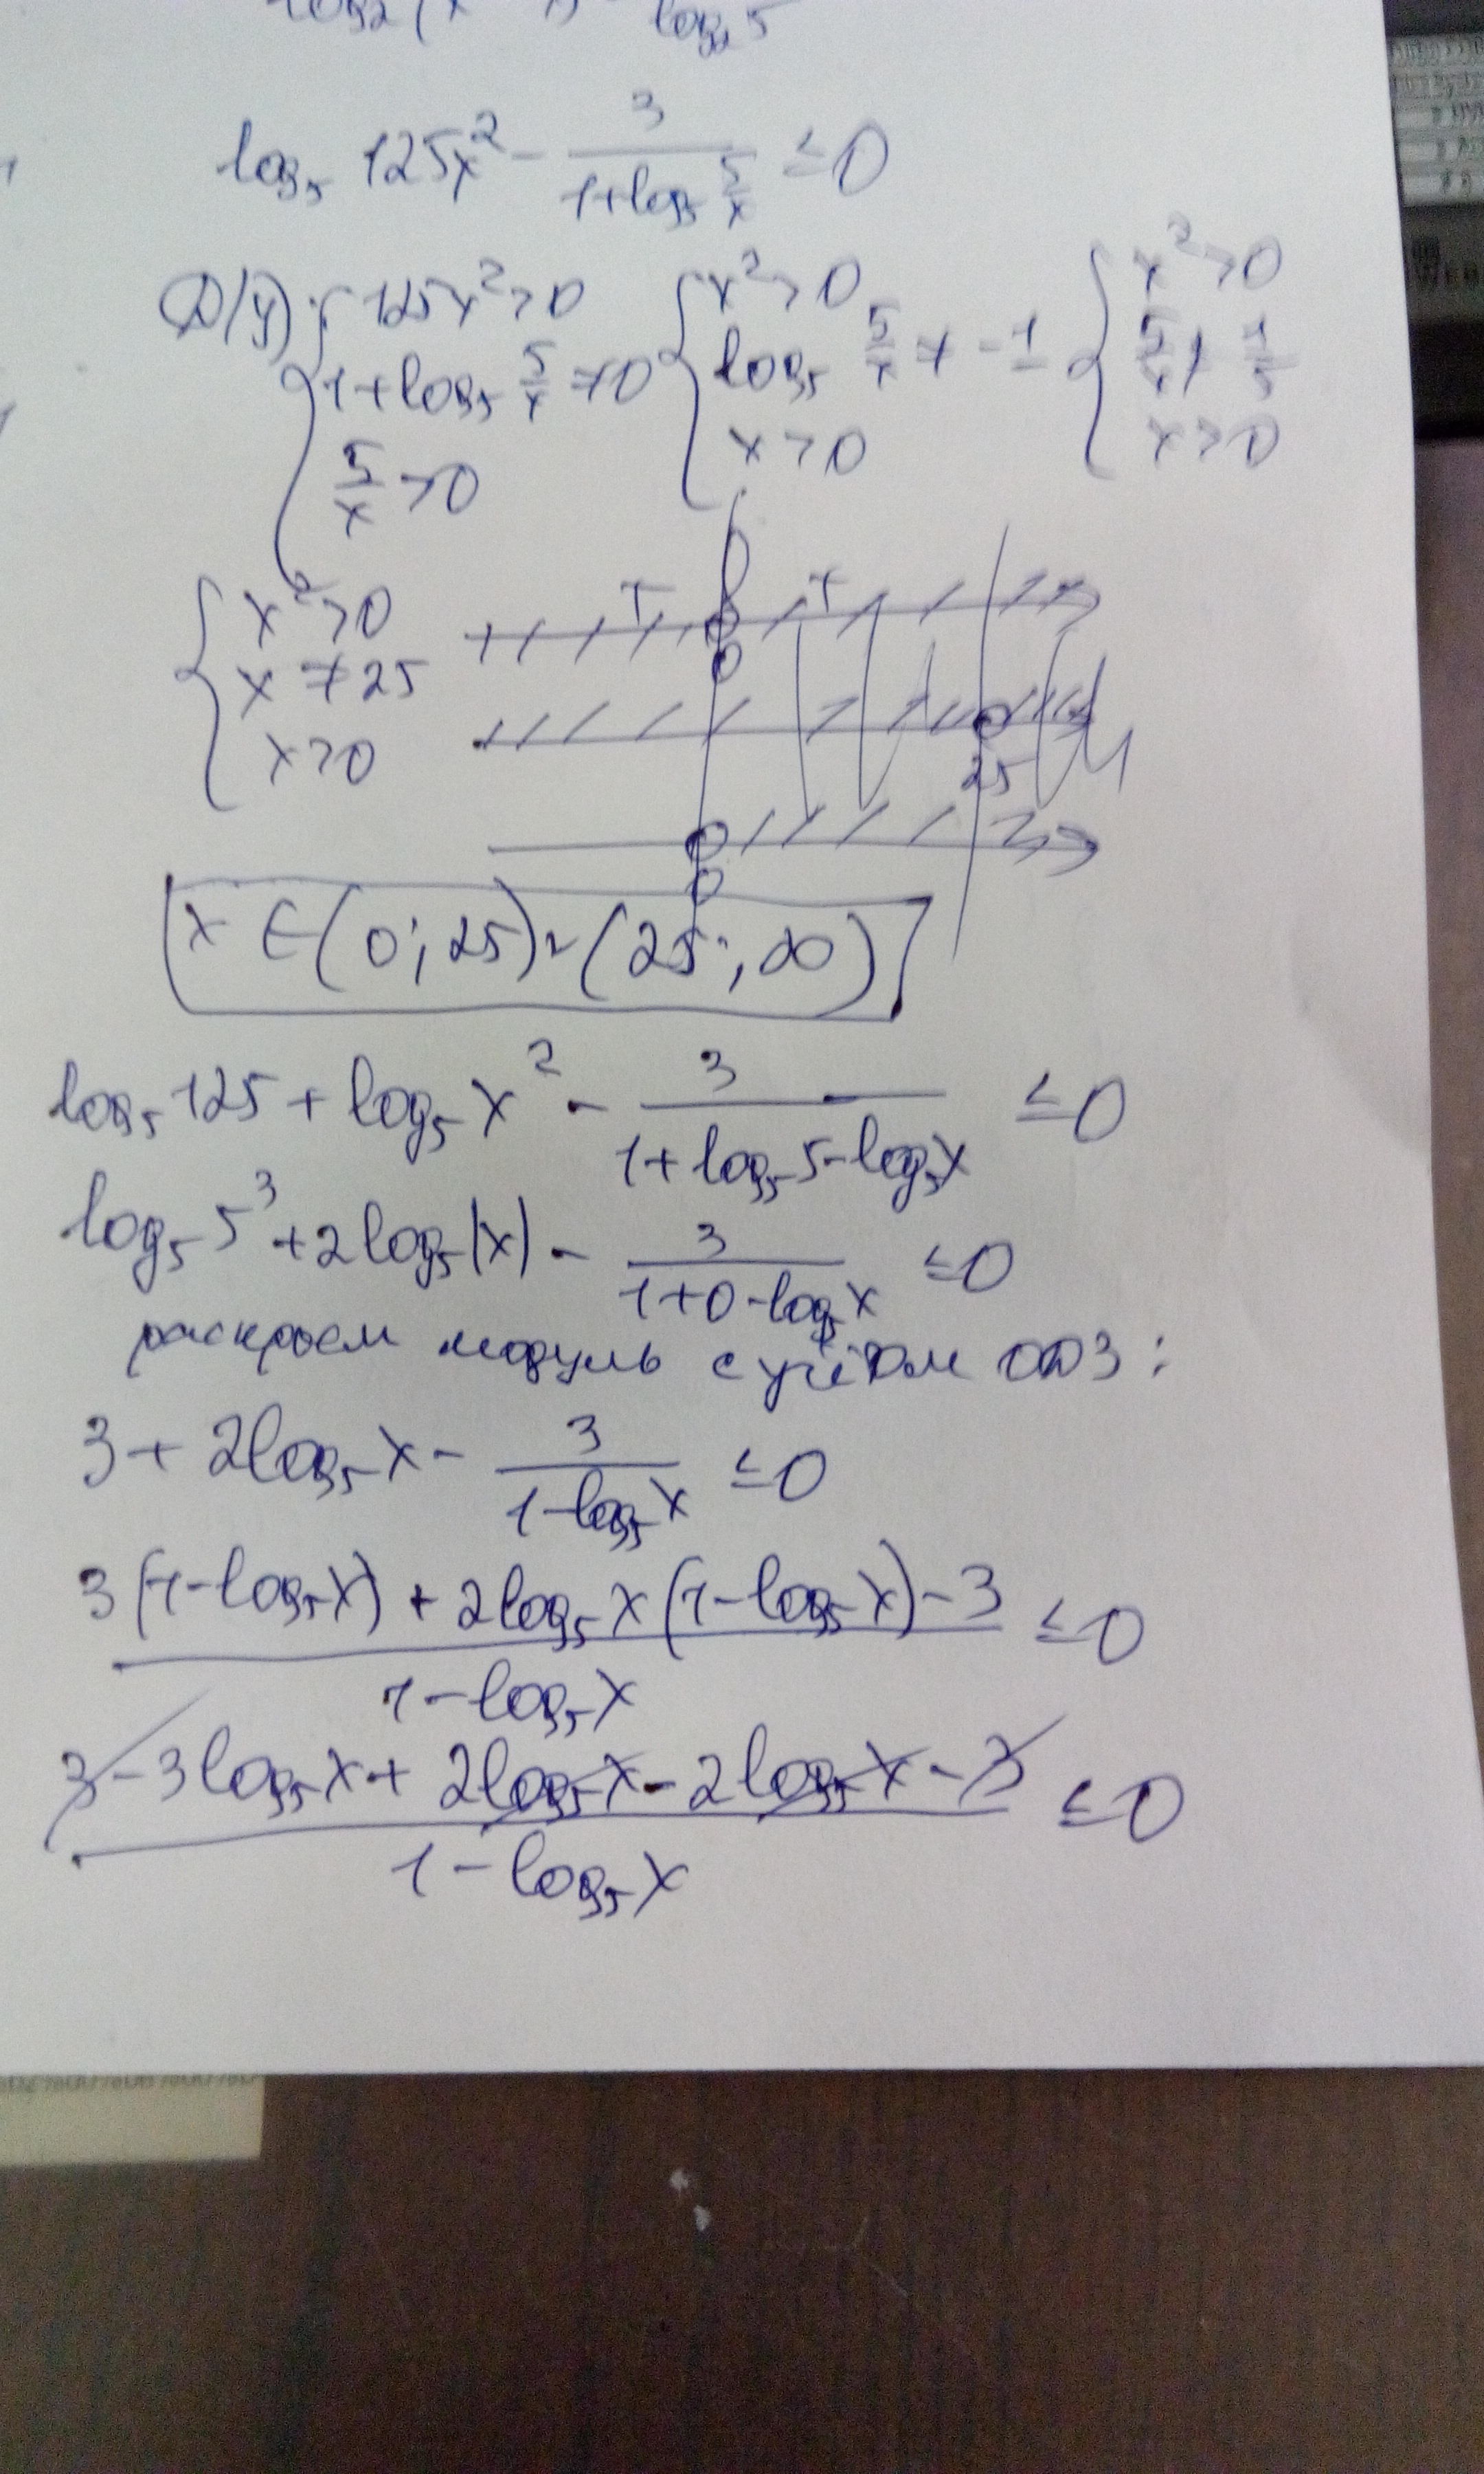 log₅ 125x² - 3/(1+log₅ 5/x) ≤ 0
D(y): { 125x²>0 { x²>0 { x²>0
1+log₅ 5/x ≠ 0 log₅ 5/x ≠ -1 5/x ≠ 1/5
5/x > 0 x>0 x>0
{ x²>0 + 0 +
x ≠ 25
x>0 25
0
x ∈ (0; 25) ∪ (25; ∞)
log₅ 125 + log₅ x² - 3/(1+log₅ 5 - log₅ x) ≤ 0
log₅ 5³ + 2log₅ |x| - 3/(1+0-log₅ x) ≤ 0
раскроем модуль с учётом ОДЗ:
3 + 2log₅ x - 3/(1-log₅ x) ≤ 0
(3(1-log₅ x) + 2log₅ x (1-log₅ x) - 3)/(1-log₅ x) ≤ 0
(3 - 3log₅ x + 2log₅ x - 2log₅ x - 3)/(1-log₅ x) ≤ 0